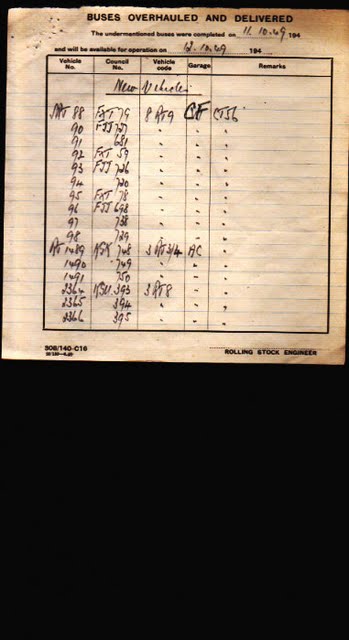 BUSES OVERHAULED AND DELIVERED
The undermentioned buses were completed on 11.10.49 194
and will be available for operation on 12.10.49 194
Vehicle No. Council No. Vehicle code Garage Remarks
New Vehicles
88 FXT 79 8 RT9 CF CT56
90 FJJ 727 " " "
91 681 " " "
92 FXT 59 " " "
93 FJJ 726 " " "
94 720 " " "
95 FXT 78 " " "
96 FJJ 698 " " "
97 738 " " "
98 729 " " "
RT 1489 KGK 748 3 RT3/4 AC "
1490 749 " " "
1491 750 " " "
2364 KGU 393 3 RT8 " "
2365 394 " " "
2366 395 " " "
308/140-C16
ROLLING STOCK ENGINEER